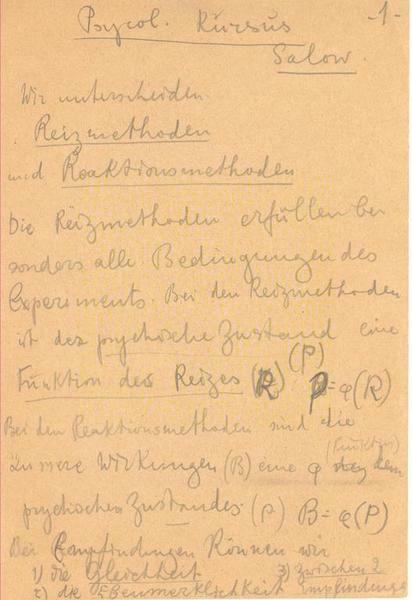 Psycol. Kursus -1-
Salow.
Wir unterscheiden
Reizmethoden
und Reaktionsmethoden
Die Reizmethoden erfüllen be
sonders alle Bedingungen des
Experiments. Bei den Reizmethoden
ist der psychische Zustand eine
(P)
Funktion des Reizes (R) P=φ(R)
Bei den Reaktionsmethoden sind die
Wirkungen (B) eine φ (Funktion) dem
psychischen Zustandes (P) B=φ(P)
Bei Empfindungen können wir
1) die Gleichheit 3) zwischen 2
2) die Ebenmerklichkeit Empfindunge